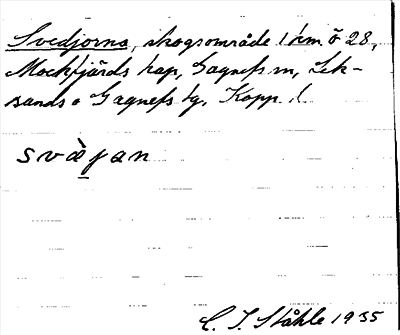 Svedjorna, skogsområde 1 km ö 28,
Mockfjärds kap, Gagnefs sn, Lek-
sands o Gagnefs tg, Kopp. l.
svæ̀jan
C. I. Ståhle 1935